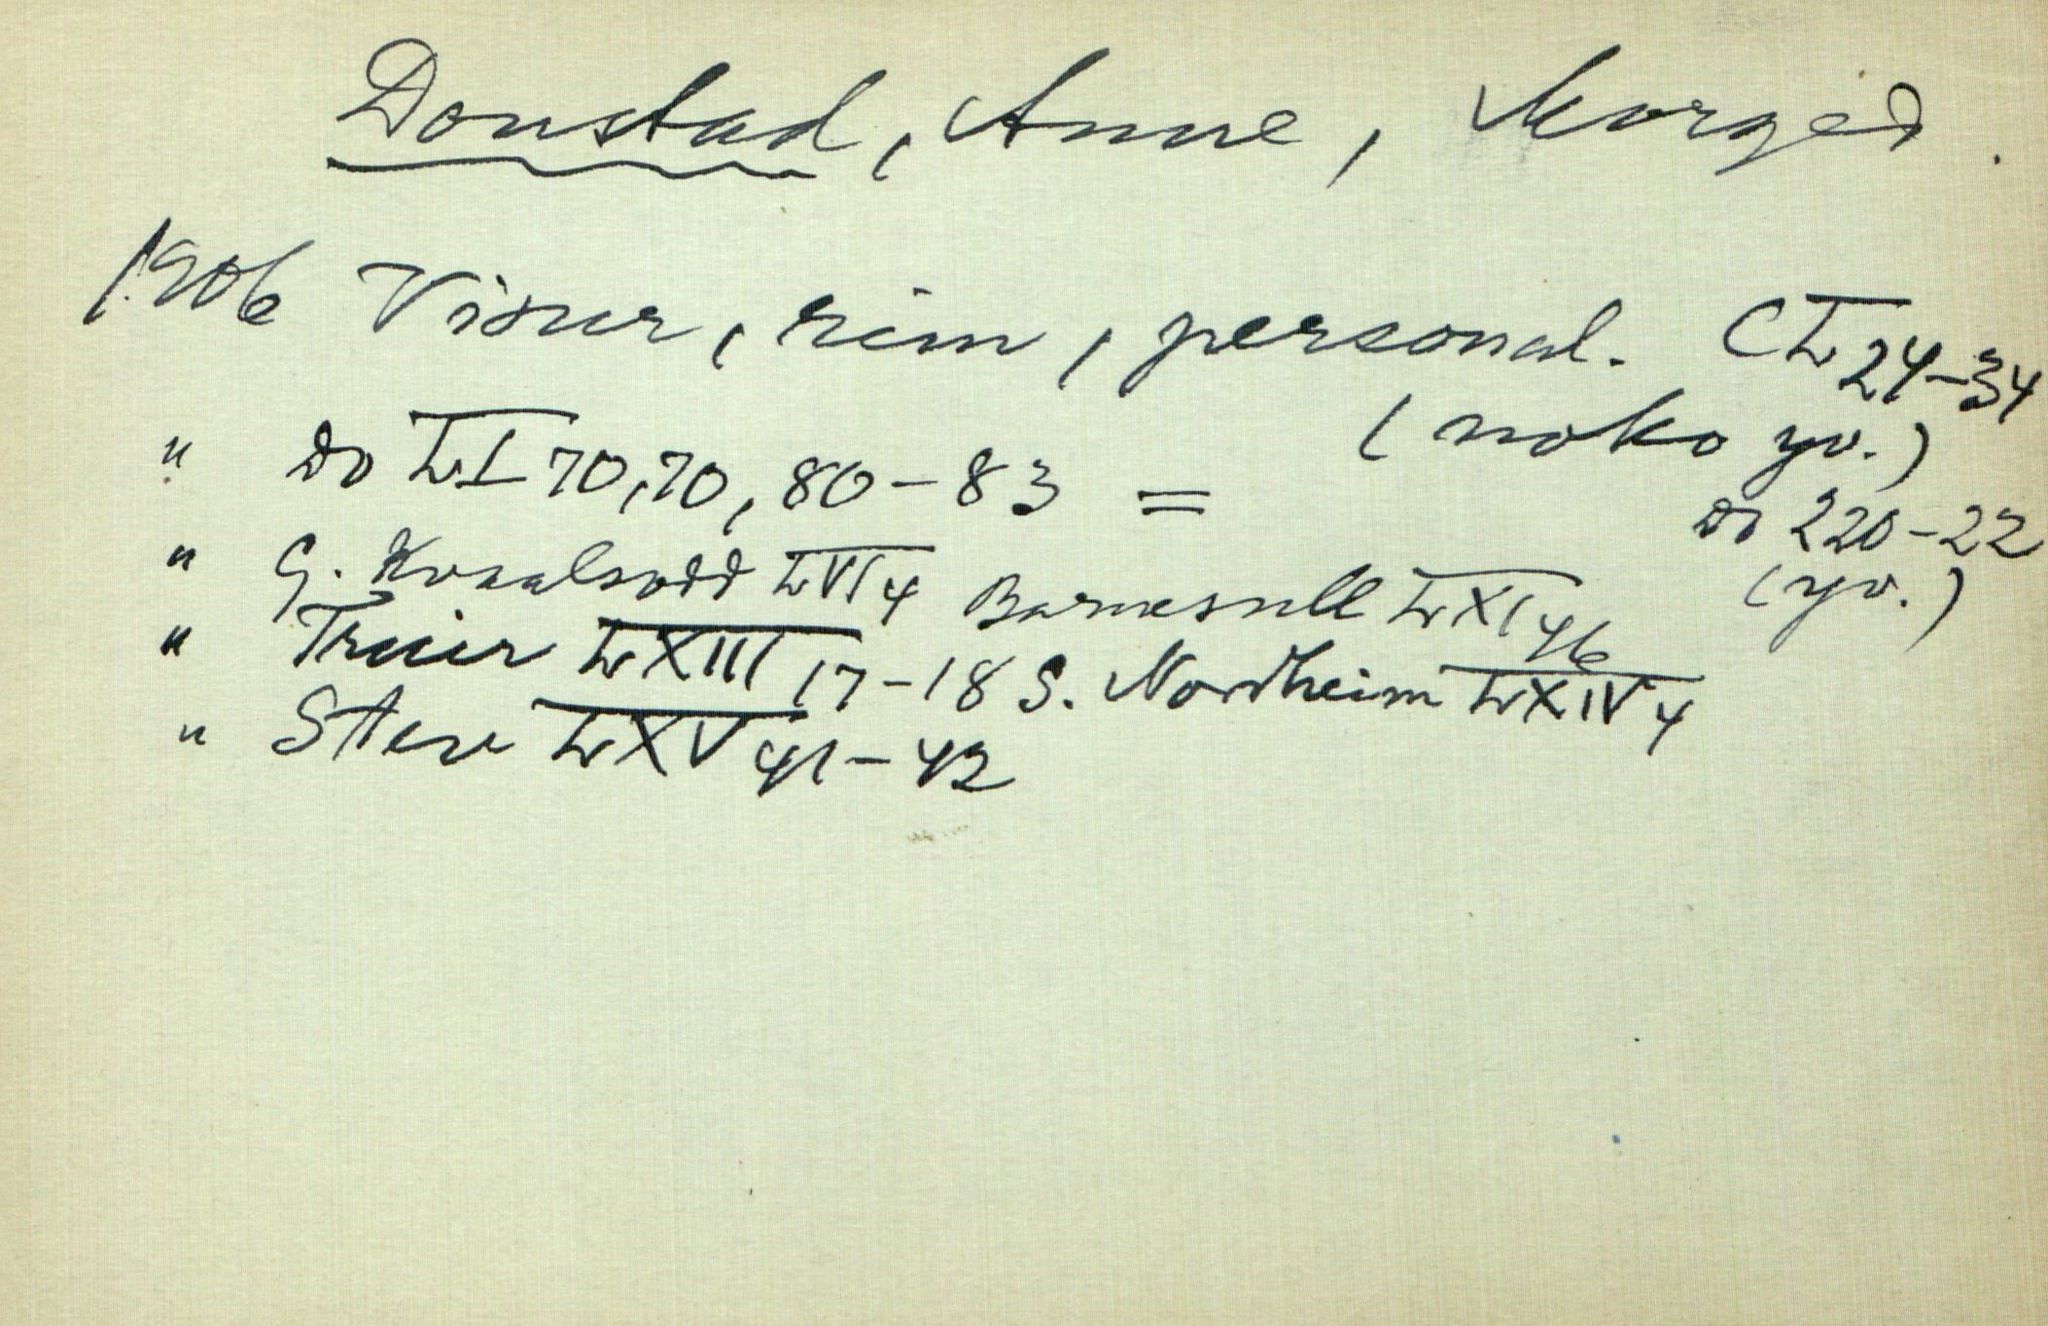 Donstad, Anne, Morgedal.
1906 Visur, rim, personal. CL 24-34
(noko yv.)
" Do LI 70,70, 80-83 = Do 220-22
(yv.)
" G. Kvaalsodd LVI 4 Barnesull LXI 46
" Truir LXIII 17-18 S. Nordheim LXIV 4
" Stev LXV 41-42